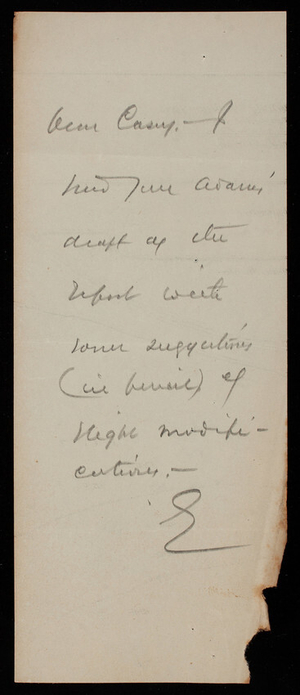 Dear Casey, - I
send you Adams'
draft of the
Report with
some suggestions
(in pencil) of
slight modifi-
cations. -
E